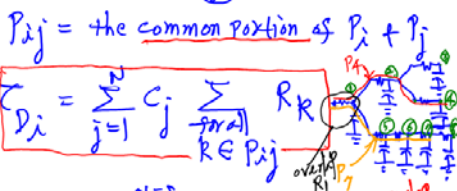 Pij = the common portion of Pi + Pj
τDi = N∑j=1 Cj ∑for all k∈Pij Rk
P4
overlap R1
P7